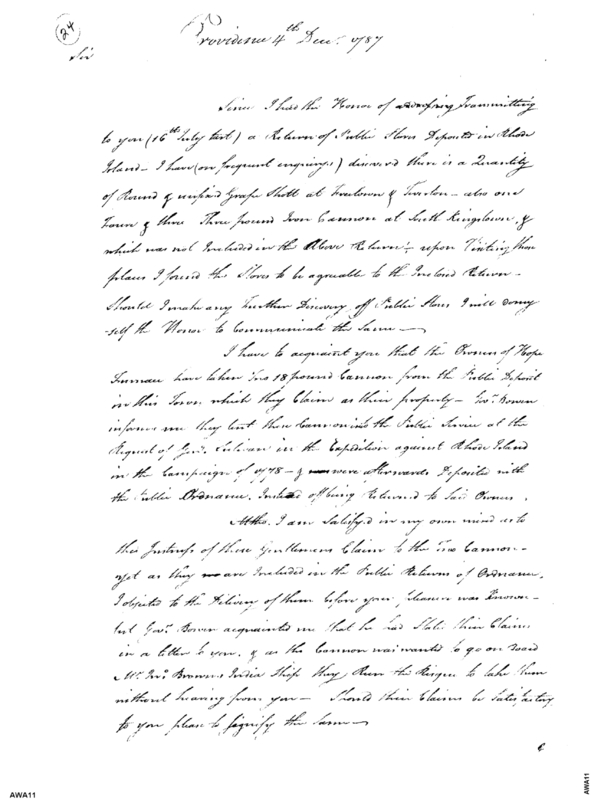 24
Providence 4th Decr. 1787
Sir
Since I had the Honor of Transmitting
to you (16th July last) a Return of Public Stores Deposited in Rhode
Island - I have (on frequent enquiry) discovrd there is a Quantity
of Round & Grape Shott at Freetown & Tiverton - also one
Four & three Three pound Iron Cannon at South Kingstown, &
which was not Included in the Above Return - upon Visiting those
places I found the Stores to be agreable to the Inclosed Return -
Should I make any Further Discovery off Public Stores I will do my
self the Honor to Communicate the Same —
I have to acquaint you that the Owners of Hope
Furnace have taken Two 18 pound Cannon from the Public Deposit
in this Town, which they Claim as their property - Govr. Bowen
informs me they lent those Cannon into the Public Service at the
Request of Genl. Sulivan in the Expedition against Rhode Island
in the Campaign of 1778 - & were afterwards Deposited with
the Public Ordnance, Instead off being Returned to Said Owners.
Altho. I am Satisfyd in my own mind as to
the Justness of these Gentlemens Claim to the Two Cannon -
yet as they are Included in the Public Returns of Ordnance,
I objected to the Delivery of them before your pleasure was Known -
but Govr. Bowen acquainted me that he had State their Claims
in a letter to you, & as the Cannon was wanted to go on Board
Mr. Jno. Browns India Ship they Run the Risque to take them
without hearing from you — Should their Claims be Satisfactory
to you please to Signify the Same —
AWA11
AWA11